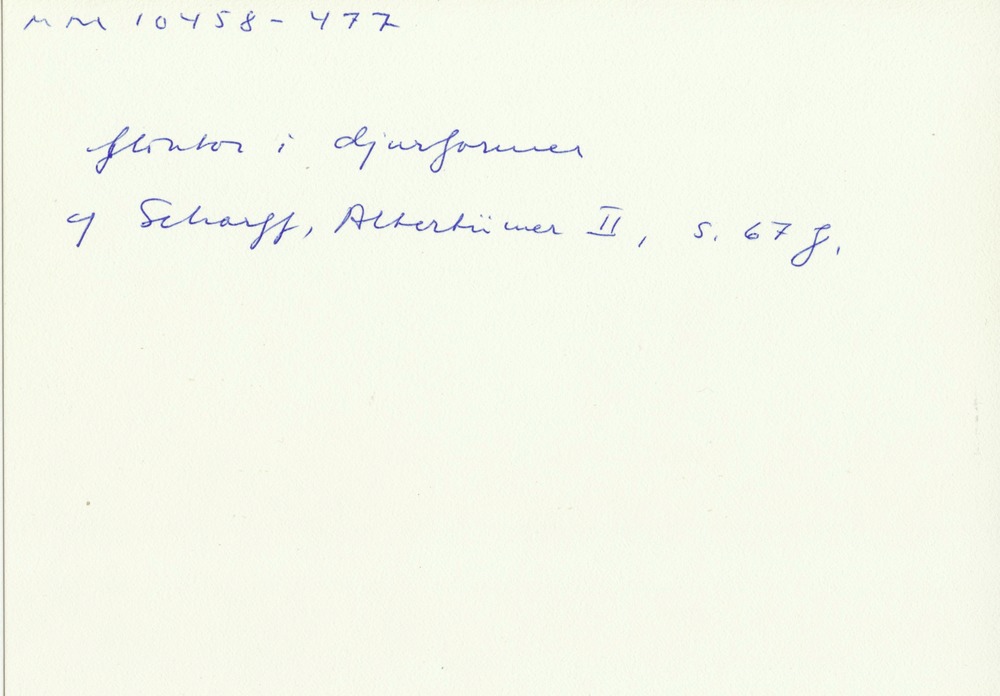 MM 10458-477
flintor i djurformer
cf Scharff, Altertümer II, s. 67 f.